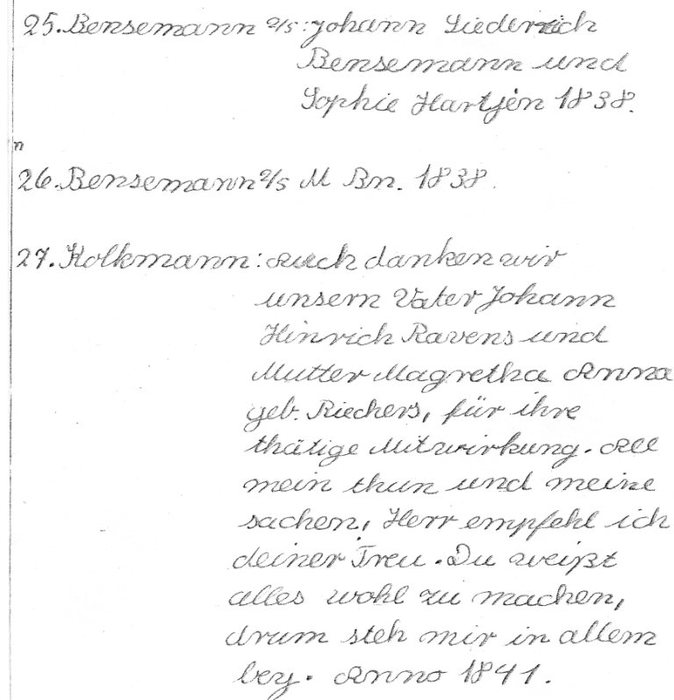 25. Bensemann a/s: Johann Diederich
Bensemann und
Sophie Hartjen 1838.
n
26. Bensemann a/s M Bn. 1838.
27. Kolkmann: Auch danken wir
unsern Vater Johann
Hinrich Ravens und
Mutter Magretha Anna
geb. Riechers, für ihre
thätige Mitwirkung. All
mein thun und meine
sachen, Herr empfehl ich
deiner Treu. Du weißt
alles wohl zu machen,
drum steh mir in allem
bey. Anno 1841.